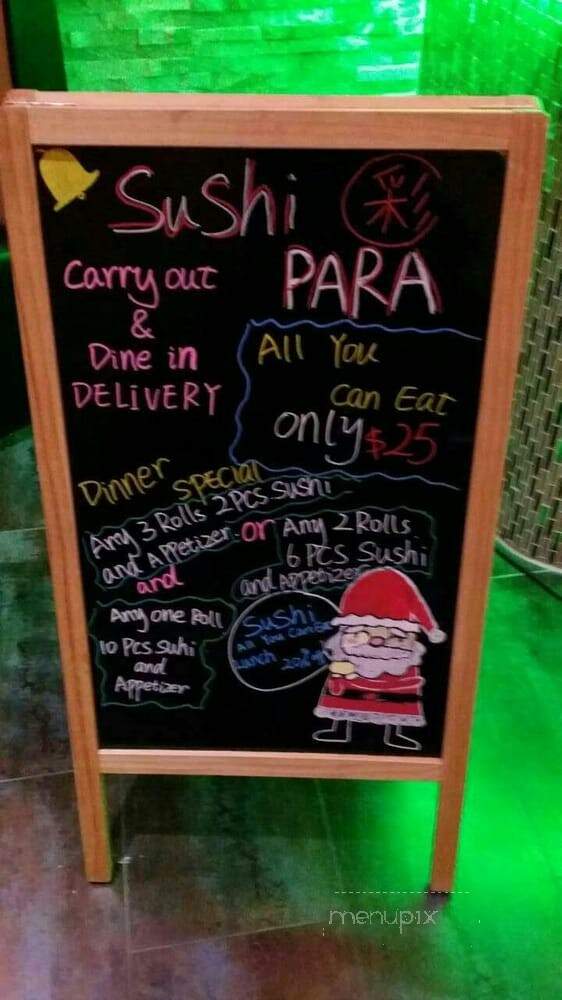 Sushi 彩
PARA
Carry out
&
Dine in
DELiVERY
All You
Can Eat
only $25
Dinner SPECIAL
Any 3 Rolls 2Pcs Sushi
and Appetizer
or
Any 2 Rolls
6 PCS Sushi
and Appetizer
and
Any one Roll
10 Pcs Suhi
and
Appetizer
Sushi
All You Can
Lunch
menupix